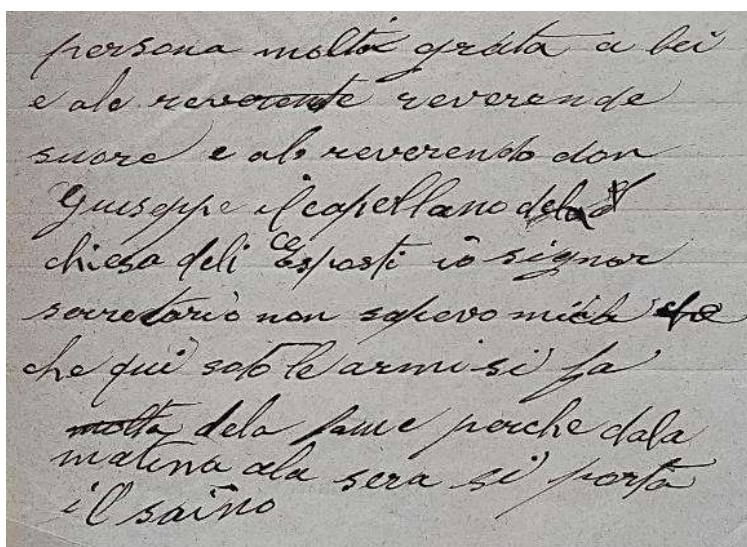 persona molta grata a lei
e ale reverente reverende
suore e al reverendo don
Giuseppe il capellano dela
chiesa deli Esposti io signor
secretario non sapevo mica che
che qui soto le armi si fa
molta dela fame perche dala
matina ala sera si porta
il saino